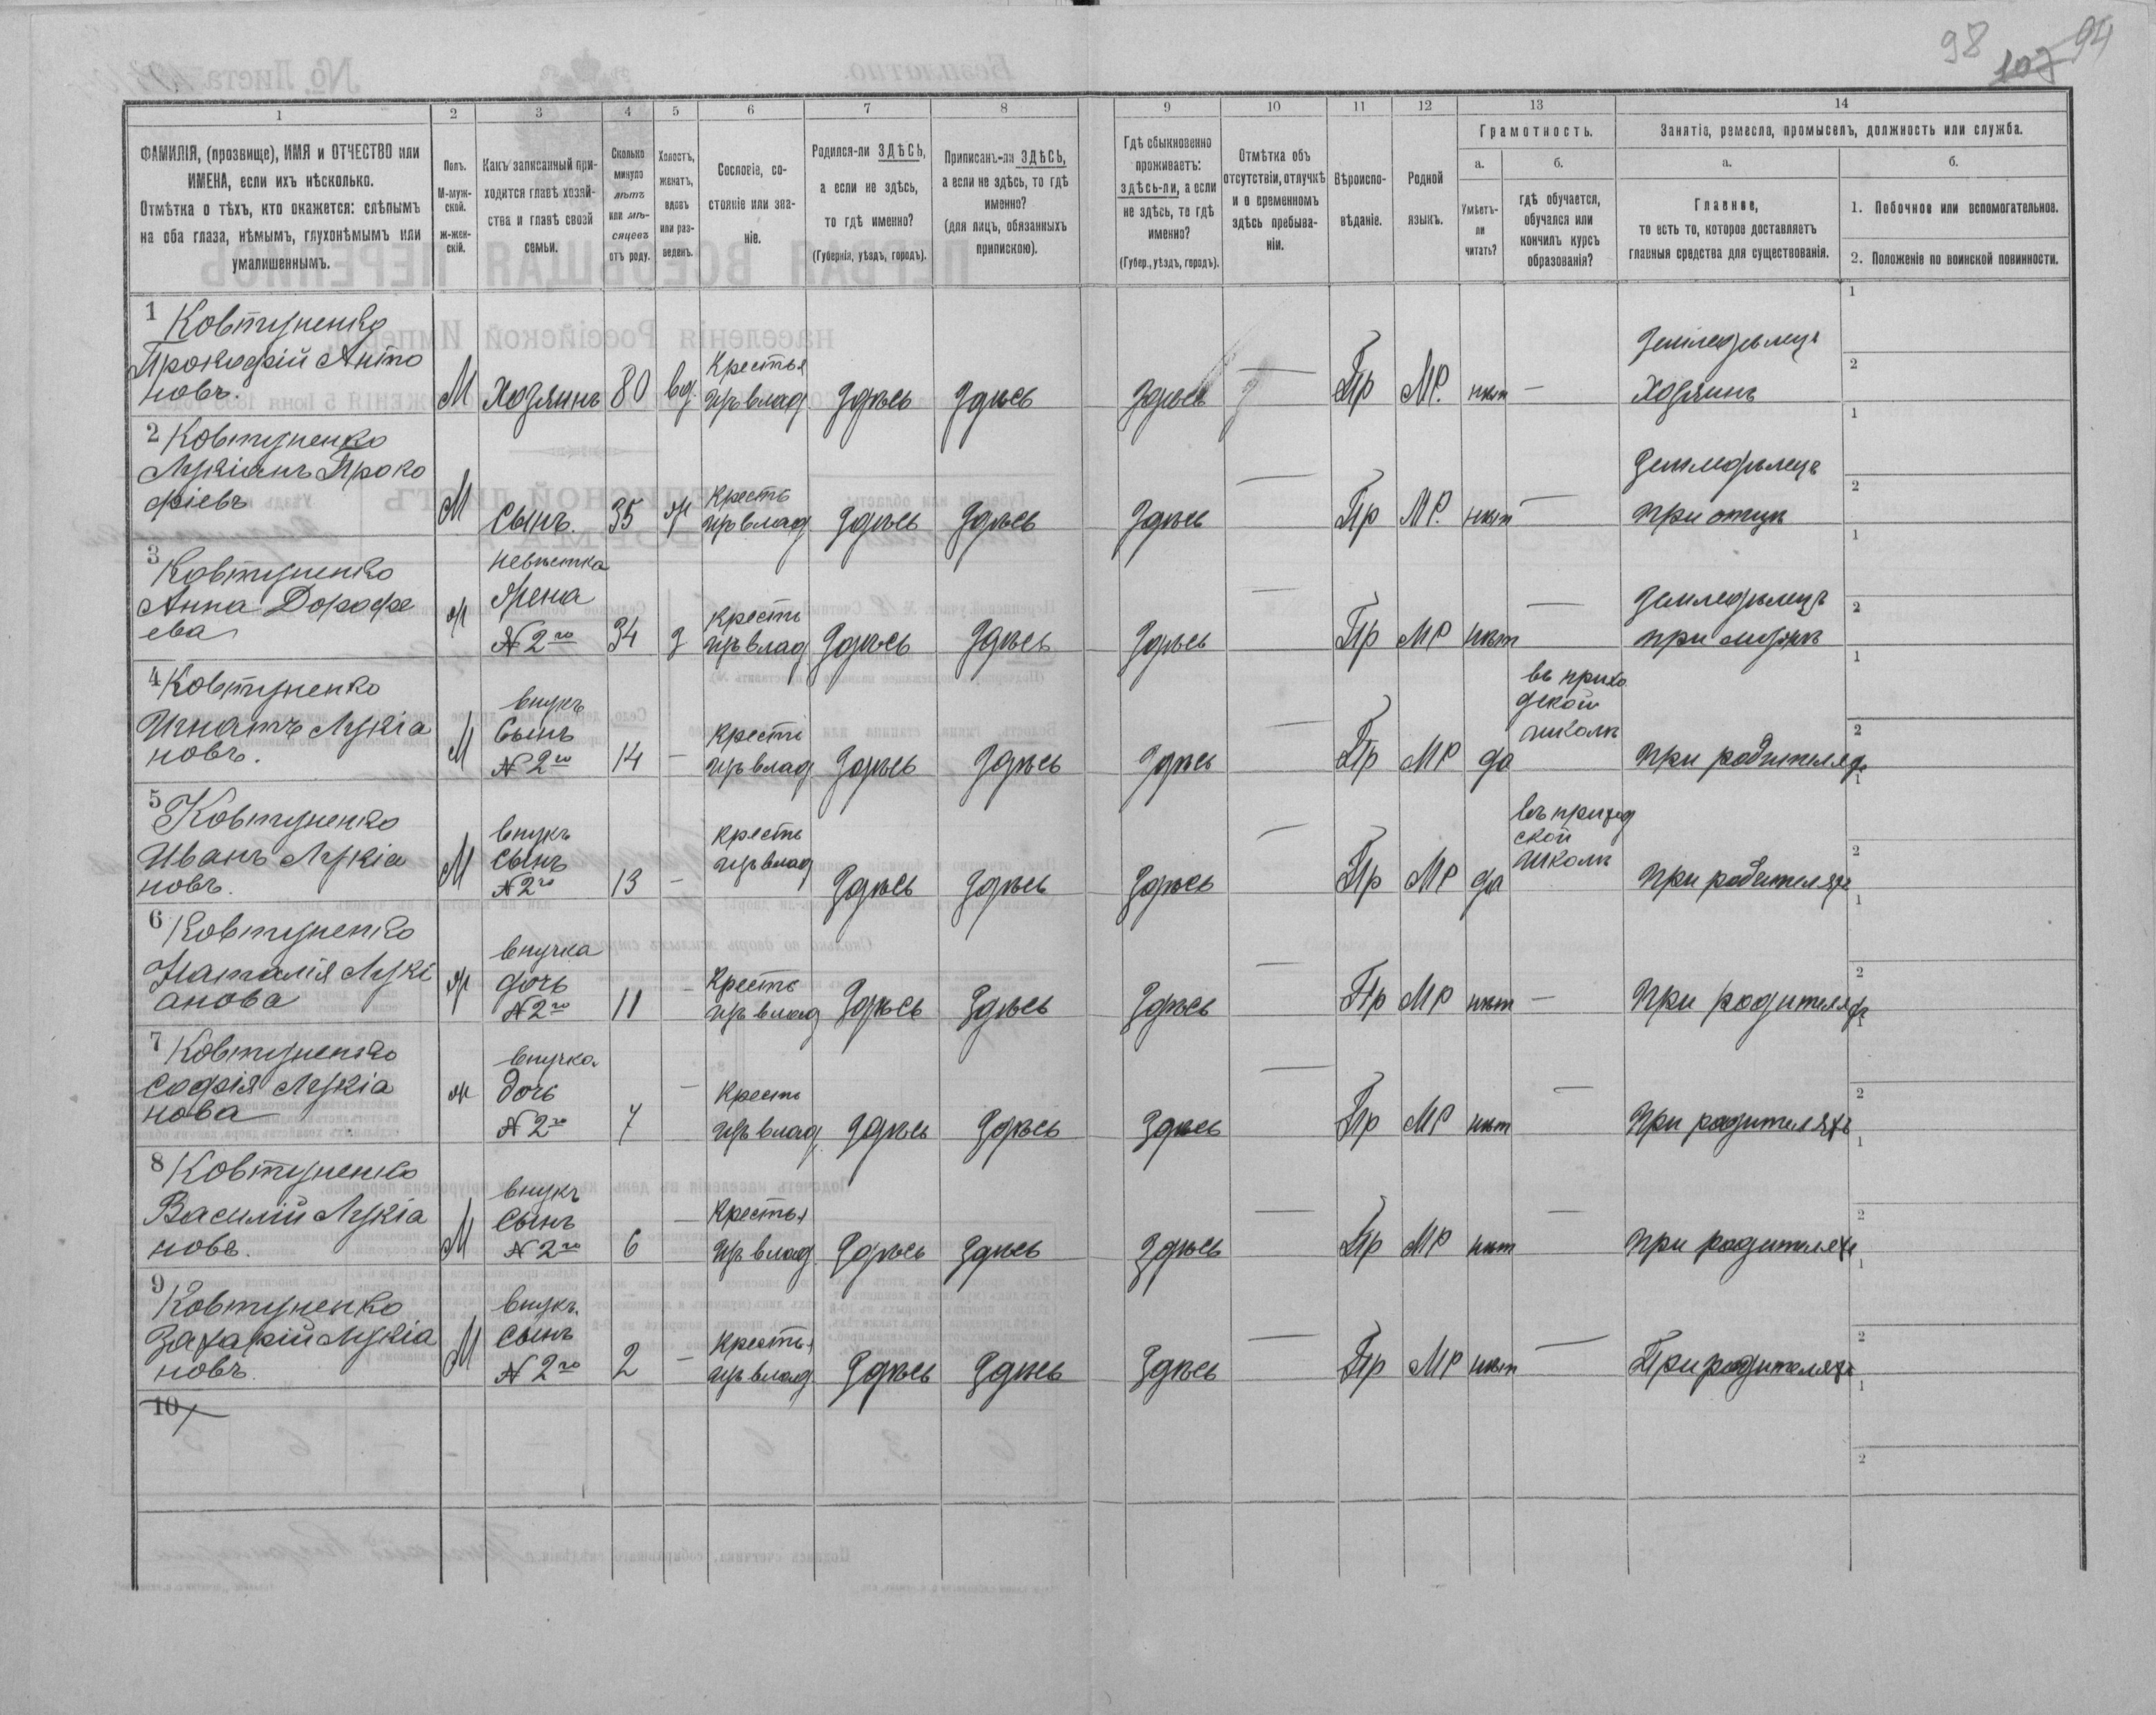 98
107 94
1 2 3 4 5 6 7 8 9 10 11 12 13 14
ФАМИЛІЯ, (прозвище), ИМЯ и ОТЧЕСТВО или
ИМЕНА, если ихъ нѣсколько.
Отмѣтка о тѣхъ, кто окажется: слѣпымъ
на оба глаза, нѣмымъ, глухонѣмымъ или
умалишеннымъ.
Полъ.
М-муж-
ской.
ж-жен-
скій.
Какъ записанный при-
ходится главѣ хозяй-
ства и главѣ своей
семьи.
Сколько
минуло
лѣтъ
или мѣ-
сяцевъ
отъ роду.
Холостъ,
женатъ,
вдовъ
или раз-
веденъ.
Сословіе, со-
стояніе или зва-
ніе.
Родился-ли ЗДѢСЬ,
а если не здѣсь,
то гдѣ именно?
(Губернія, уѣздъ, городъ).
Приписанъ-ли ЗДѢСЬ,
а если не здѣсь, то гдѣ
именно?
(для лицъ, обязанныхъ
припискою).
Гдѣ обыкновенно
проживаетъ:
здѣсь-ли, а если
не здѣсь, то гдѣ
именно?
(Губер., уѣздъ, городъ).
Отмѣтка объ
отсутствіи, отлучкѣ
и о временномъ
здѣсь пребыва-
ніи.
Вѣроиспо-
вѣданіе.
Родной
языкъ.
Грамотность.
а.
Умѣетъ-
ли
читать?
б.
гдѣ обучается,
обучался или
кончилъ курсъ
образованія?
Занятіе, ремесло, промыселъ, должность или служба.
а.
Главное,
то есть то, которое доставляетъ
главныя средства для существованія.
б.
1. Побочное или вспомогательное.
2. Положеніе по воинской повинности.
1 Ковтуненко
Прокофій Анто
новъ.
М Хозяинъ 80 вд.
Крестья
изъ влад
Здѣсь Здѣсь Здѣсь — Пр МР. нѣт —
Земледѣлецъ
Хозяинъ
1
2
2 Ковтуненко
Лукіанъ Проко
фіевъ
М Сынъ. 35 ж
Кресть
изъ влад
Здѣсь Здѣсь Здѣсь — Пр МР. нѣт —
Земледѣлецъ
при отцѣ
1
2
3 Ковтуненко
Анна Дорофе
ева
ж
невѣстка
Жена
№ 2го
34 з
Кресть
изъ влад
Здѣсь Здѣсь Здѣсь — Пр МР нѣт —
Земледѣлецъ
при мужѣ
1
2
4 Ковтуненко
Игнатъ Лукіа
новъ.
М
внукъ
Сынъ
№ 2го
14 —
Кресті
изъ влад
Здѣсь Здѣсь Здѣсь — Пр МР да
въ прихо
дской
школѣ
при родителях
1
2
5 Ковтуненко
Иванъ Лукіа
новъ.
М
внукъ
сынъ
№ 2го
13 —
Кресть
изъ влад
Здѣсь Здѣсь Здѣсь — Пр МР да
въ приход
ской
школѣ
при родителях
1
2
6 Ковтуненко
Наталія Лукі
анова
ж
внучка
дочь
№ 2го
11 —
Кресть
изъ влад
Здѣсь Здѣсь Здѣсь — Пр МР нѣт —
при родителях
1
2
7 Ковтуненко
Софія Лукіа
нова
ж
внучка
дочь
№ 2го
7 —
Кресть
изъ влад
Здѣсь Здѣсь Здѣсь — Пр МР нѣт —
при родителяхъ
1
2
8 Ковтуненко
Василій Лукіа
новъ.
М
внукъ
Сынъ
№ 2го
6 —
Крестья
изъ влад
Здѣсь Здѣсь Здѣсь — Пр МР нѣт —
при родителях
1
2
9 Ковтуненко
Захарій Лукіа
новъ.
М
внукъ.
сынъ
№ 2го
2 —
Крестья
изъ влад
Здѣсь Здѣсь Здѣсь — Пр МР нѣт —
При родителях
1
2
10
1
2